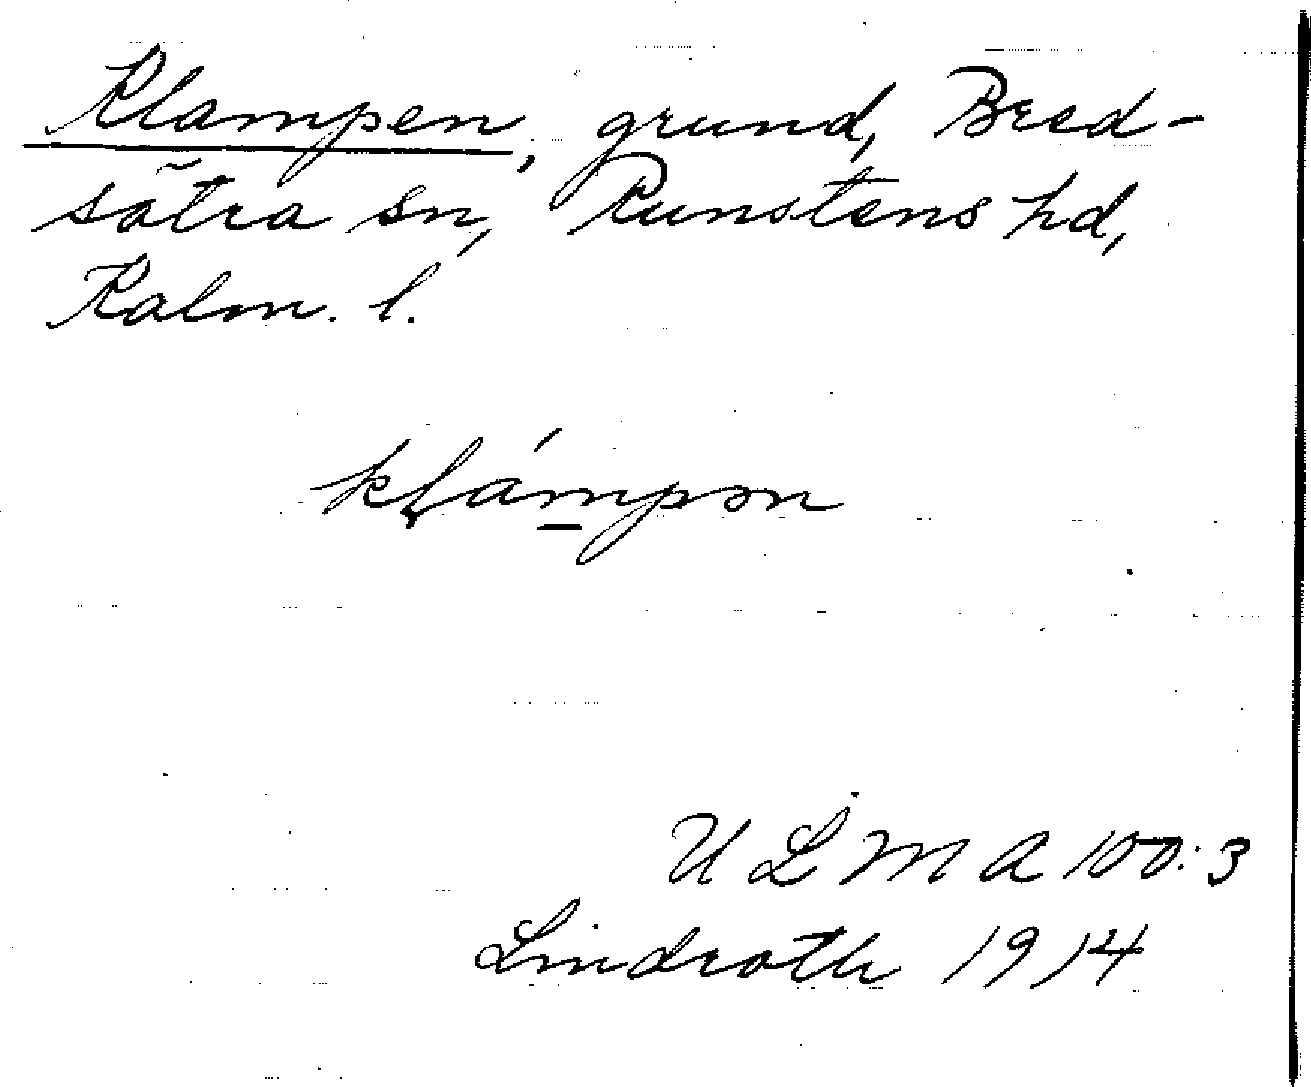 Klampen, grund, Bred-
sätra sn, Runstens hd,
Kalm. l.
klámpən
ULMA 100:3
Lindroth 1914